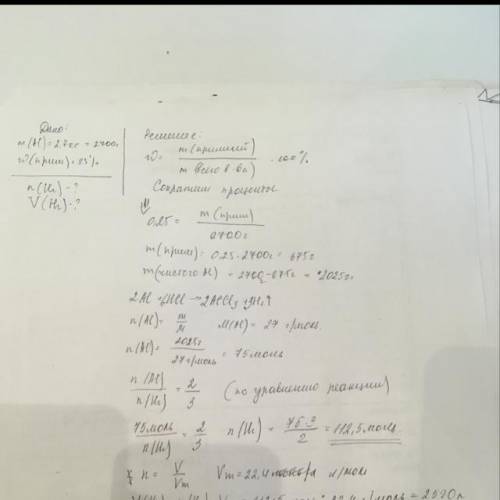 Дано:
m(Al)=2,7кг = 2700г
ω(прим)=25%
n(H₂)-?
V(H₂)-?
Решение:
ω= m(примесей) / m(всего в-ва) · 100%
Сократим проценты
0,25 = m(прим) / 2700г
m(прим)= 0,25·2700г = 675г
m(чистого Al) = 2700-675г = 2025г
2Al +6HCl → 2AlCl₃ +3H₂↑
n(Al)= m/M M(Al)= 27 г/моль
n(Al)= 2025г / 27 г/моль = 75моль
n(Al) / n(H₂) = 2/3 (по уравнению реакции)
75моль / n(H₂) = 2/3 n(H₂)= 75·3 / 2 = 112,5моль
n= V/Vm Vm=22,4 л/моль
22,4 л/моль = 2520л